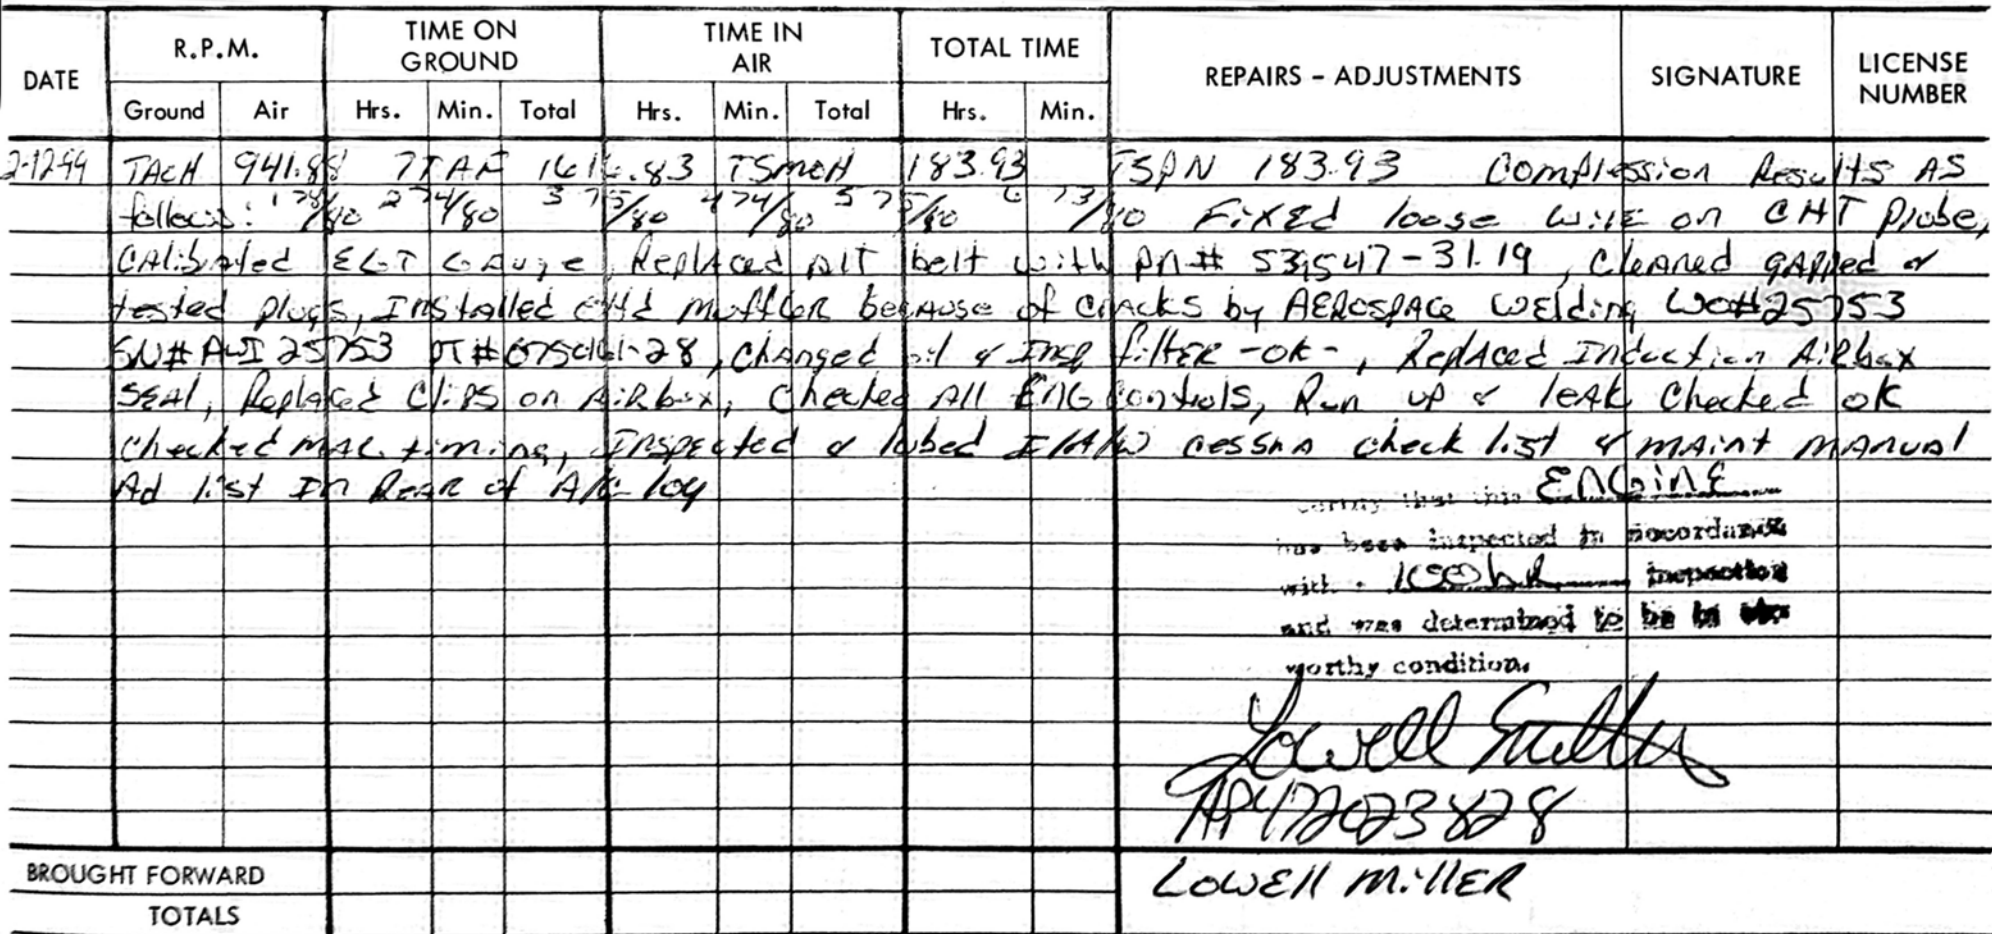 DATE R.P.M. TIME ON GROUND TIME IN AIR TOTAL TIME REPAIRS – ADJUSTMENTS SIGNATURE LICENSE NUMBER
Ground Air Hrs. Min. Total Hrs. Min. Total Hrs. Min.
2-12-99 TACH 941.88 TTAF .83 TSMOH 183.93 TSPN 183.93 Compression Results AS
follows: 1 78/80 2 74/80 3 75/80 4 74/80 5 75/80 6 73/80 Fixed loose wire on CHT Probe,
CAlibrated EGT Gauge, Replaced Alt belt with PN# 539547-31.19, Cleaned gapped &
tested plugs, Installed muffler because of cracks by AEROSPACE Welding WO#25753
SN# AWI 25753 PT# -28, changed oil & Insp filter -OK-, Replaced Induction Airbox
SEAL, Replaced Clips on Airbox, Checked All ENG Controls, Run up & leak Checked ok
Checked MAG timing, INSPected & lubed I/A/W cessna check list & MAint MANUAl
Ad list In Rear of A/C log
certify that this ENGINE
has been inspected in accordance
with a 100 hR inspection
and was determined to be in
worthy condition.
Lowell Miller
AP472023828
LOWEll MillER
BROUGHT FORWARD
TOTALS